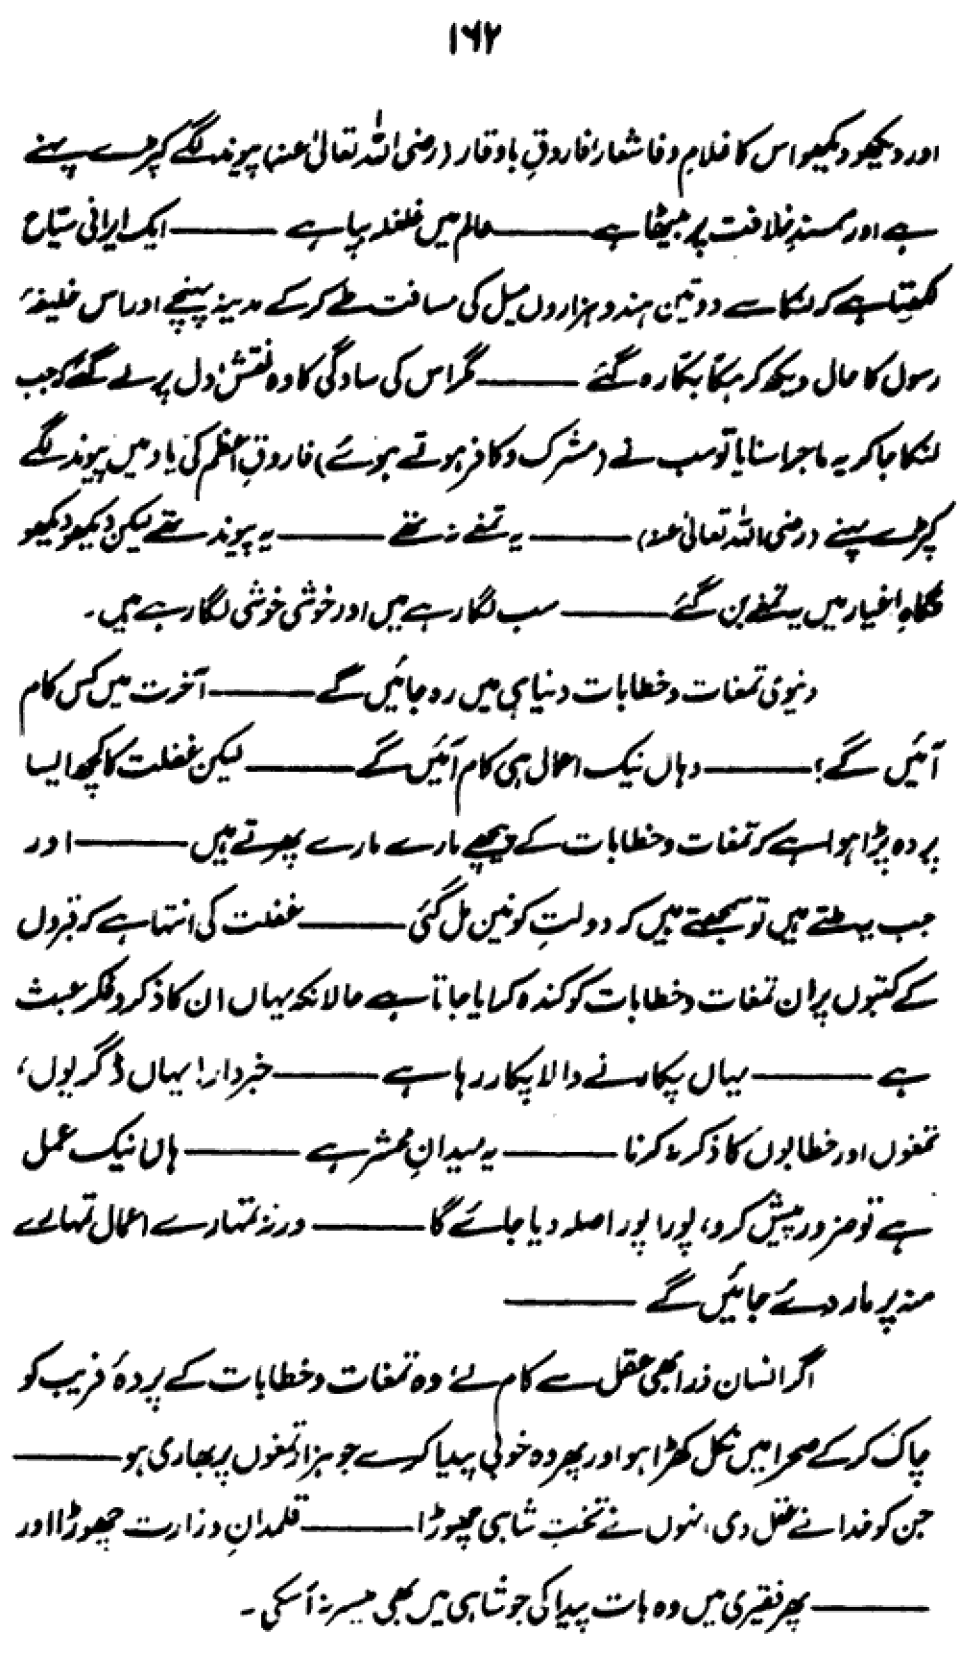 ۱۶۲
اور دیکھو دیکھو اس کا غلامِ وفا شعار، فاروقِ باوقار (رضی اللہ تعالیٰ عنہ) پیوند لگے کپڑے پہنے
ہے اور مسندِ خلافت پر بیٹھا ہے ——— عالم میں غلغلہ بپا ہے ——— ایک ایرانی سیّاح
لکھتا ہے کہ لنکا سے دو تین ہندو ہزاروں میل کی مسافت طے کر کے مدینہ پہنچے اور اس خلیفۂ
رسول کا حال دیکھ کر ہکّا بکّا رہ گئے ——— مگر اس کی سادگی کا وہ نقش دل پر لے گئے کہ جب
لنکا جا کر یہ ماجرا سنایا تو سب نے (مشرک و کافر ہوتے ہوئے) فاروقِ اعظم کی یاد میں پیوند لگے
کپڑے پہنے (رضی اللہ تعالیٰ عنہ) ——— یہ تمغے نہ تھے ——— یہ پیوند تھے لیکن دیکھو دیکھو
نگاہِ اغیار میں یہ تمغے بن گئے ——— سب لگا رہے ہیں اور خوشی خوشی لگا رہے ہیں۔
دنیوی تمغات و خطابات دنیا ہی میں رہ جائیں گے ——— آخرت میں کس کام
آئیں گے؟ ——— وہاں نیک اعمال ہی کام آئیں گے ——— لیکن غفلت کا کچھ ایسا
پردہ پڑا ہوا ہے کہ تمغات و خطابات کے پیچھے مارے مارے پھرتے ہیں ——— اور
جب یہ ملتے ہیں تو سمجھتے ہیں کہ دولتِ کونین مل گئی ——— غفلت کی انتہا ہے کہ قبروں
کے کتبوں پر ان تمغات و خطابات کو کندہ کرایا جاتا ہے حالانکہ یہاں ان کا ذکر و فکر عبث
ہے ——— یہاں پکارنے والا پکار رہا ہے ——— خبردار! یہاں ڈگریوں،
تمغوں اور خطابوں کا ذکر نہ کرنا ——— یہ میدانِ محشر ہے ——— ہاں نیک عمل
ہے تو ضرور پیش کرو، پورا پورا صلہ دیا جائے گا ——— ورنہ تمہارے اعمال تمہارے
منہ پر مار دئے جائیں گے ———
اگر انسان ذرا بھی عقل سے کام لے، وہ تمغات و خطابات کے پردۂ فریب کو
چاک کر کے صحرا میں نکل کھڑا ہو اور پھر وہ خوبی پیدا کرے جو ہزار تمغوں پر بھاری ہو ———
جن کو خدا نے عقل دی، انہوں نے تختِ شاہی چھوڑا ——— قلمدانِ وزارت چھوڑا اور
——— پھر فقیری میں وہ بات پیدا کی جو شاہی میں بھی میسر نہ آ سکی۔